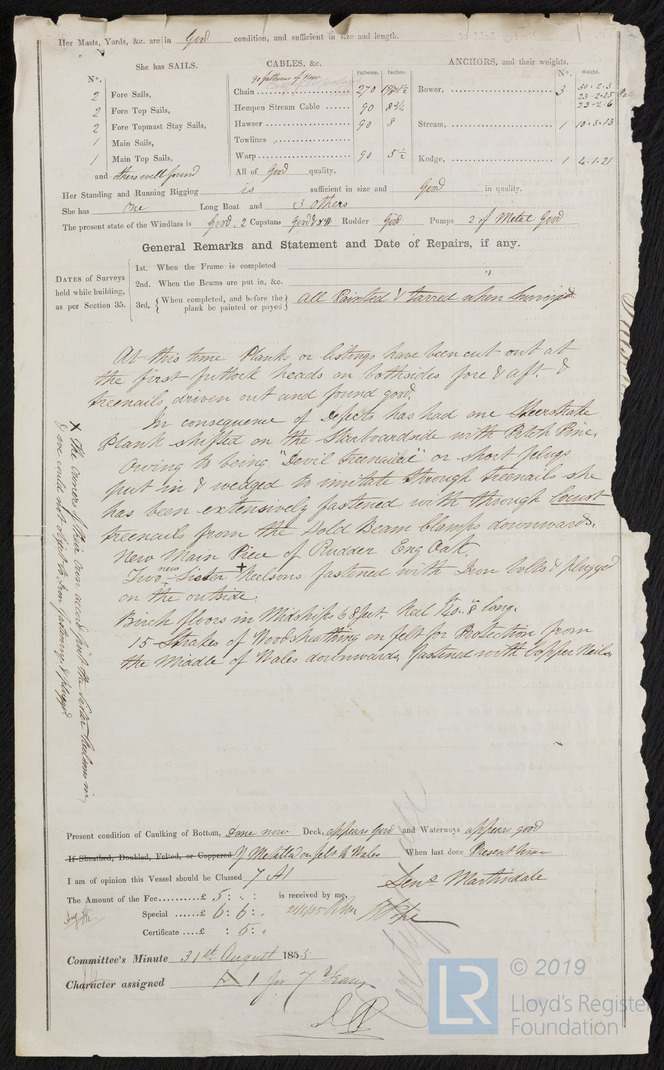 Her Masts, Yards, &c. are in Good condition, and sufficient in size and length.
She has SAILS.
CABLES, &c.
ANCHORS, and their weights.
No.
Fathoms. Inches.
No. Weight.
90 fathoms of New
2 Fore Sails,
Chain 270
Bower, 3 30.2.3
2 Fore Top Sails,
Hempen Stream Cable 90 8¼
23.2.25
23.2.6
2 Fore Topmast Stay Sails,
Hawser 90 8
Stream, 1 10.3.13
1 Main Sails,
Towlines
1 Main Top Sails,
Warp 90 5½
Kedge, 1 4.1.21
and others well found
All of Good quality.
Her Standing and Running Rigging is sufficient in size and Good in quality.
She has One Long Boat and 3 others
The present state of the Windlass is Good, 2 Capstans Good Rudder Good Pumps 2 of Metal Good
General Remarks and Statement and Date of Repairs, if any.
DATES of Surveys held while building, as per Section 35.
1st. When the Frame is completed
2nd. When the Beams are put in, &c. "
3rd. {When completed, and before the plank be painted or payed} All Painted & tarred when Surveyed
At this time Planks or listings have been cut out at
the first futtock heads on both sides fore & aft. &
treenails driven out and found good.
In consequence of Defects has had one Sheerstrake
Plank shifted on the Starboardside with Pitch Pine.
Owing to being "Devil treenailed" or short plugs
put in & wedged to imitate through treenails she
has been extensively fastened with through Locust
treenails from the Hold Beam Clamps downwards.
New Main Piece of Rudder Eng Oak.
Two new Sister + Keelsons fastened with Iron bolts & plugged
on the outside.
Birch floors in Midships 68 feet. Keel 120.8 long.
15 Strakes of Woodsheathing on felt for Protection from
the Middle of Wales downwards, fastened with Copper Nails
X The owners of their own accord put the Sister Keelsons in,
& we could not object to Iron fastening, if plugged
Present condition of Caulking of Bottom, Done now Deck, appears good and Waterways appears good
If Sheathed, Doubled, Felted, or Coppered Y Metalled on felt to Wales When last done Present time
I am of opinion this Vessel should be Classed 7 A1
The Amount of the Fee £ 5 : " : is received by me,
Martindale
Special £ 6 : 6 : "
Certificate £ : 5 : "
Committee's Minute 31st August 1855
Character assigned A 1 for 7 Years
LR
© 2019
Lloyd's Register
Foundation